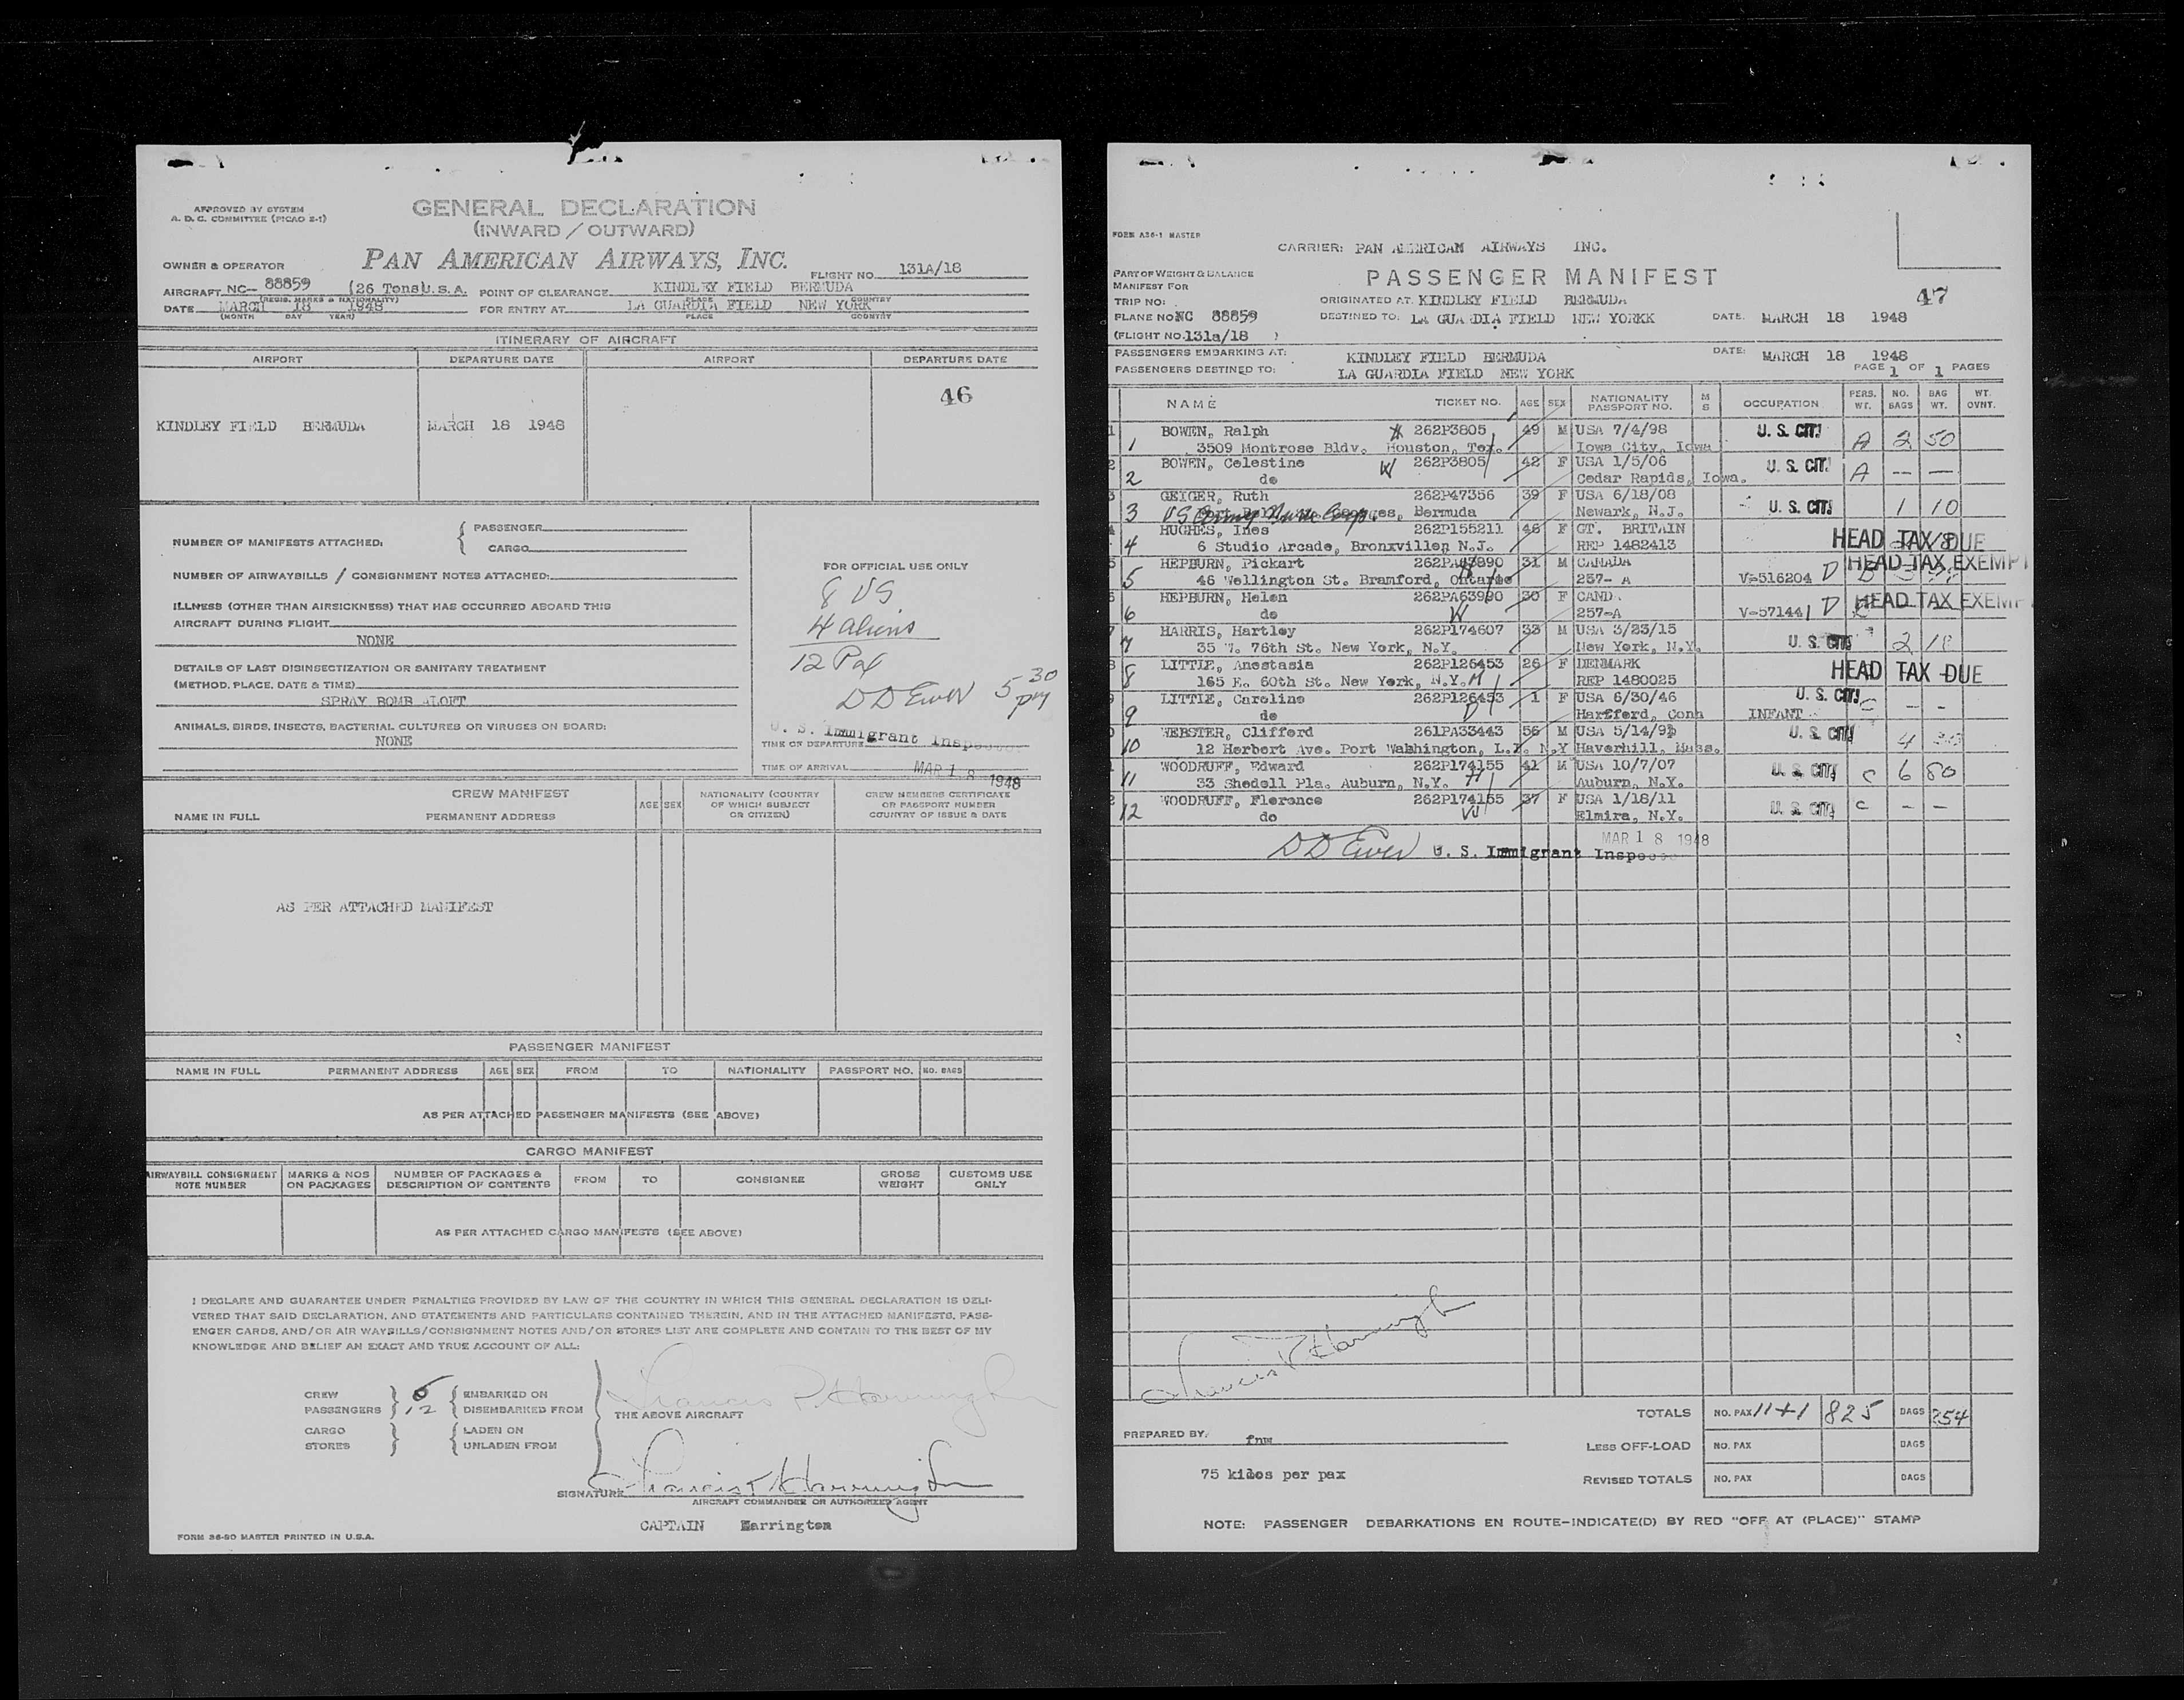 APPROVED BY SYSTEM
A. D. C. COMMITTEE (PICAO E-1)
GENERAL DECLARATION
(INWARD / OUTWARD)
PAN AMERICAN AIRWAYS, INC.
OWNER & OPERATOR
FLIGHT NO. 131A/18
AIRCRAFT NC-- 88859 (26 Tons U.S.A. POINT OF CLEARANCE KINDLEY FIELD BERMUDA
(REGIS. MARKS & NATIONALITY) PLACE COUNTRY
DATE MARCH 18 1948 FOR ENTRY AT LA GUARDIA FIELD NEW YORK
(MONTH DAY YEAR) PLACE COUNTRY
ITINERARY OF AIRCRAFT
AIRPORT DEPARTURE DATE AIRPORT DEPARTURE DATE
46
KINDLEY FIELD BERMUDA MARCH 18 1948
NUMBER OF MANIFESTS ATTACHED: PASSENGER
CARGO
NUMBER OF AIRWAYBILLS / CONSIGNMENT NOTES ATTACHED:
ILLNESS (OTHER THAN AIRSICKNESS) THAT HAS OCCURRED ABOARD THIS
AIRCRAFT DURING FLIGHT
NONE
DETAILS OF LAST DISINSECTIZATION OR SANITARY TREATMENT
(METHOD, PLACE, DATE & TIME)
SPRAY BOMB ALOFT
ANIMALS, BIRDS, INSECTS, BACTERIAL CULTURES OR VIRUSES ON BOARD:
NONE
FOR OFFICIAL USE ONLY
8 US
4 aliens
12 Pax
DD Ewer 5 30 pm
U. S. Immigrant Inspector
TIME OF DEPARTURE
TIME OF ARRIVAL MAR 18 1948
CREW MANIFEST
NAME IN FULL PERMANENT ADDRESS AGE SEX NATIONALITY (COUNTRY OF WHICH SUBJECT OR CITIZEN) CREW MEMBERS CERTIFICATE OR PASSPORT NUMBER COUNTRY OF ISSUE & DATE
AS PER ATTACHED MANIFEST
PASSENGER MANIFEST
NAME IN FULL PERMANENT ADDRESS AGE SEX FROM TO NATIONALITY PASSPORT NO. NO. BAGS
AS PER ATTACHED PASSENGER MANIFESTS (SEE ABOVE)
CARGO MANIFEST
AIRWAYBILL CONSIGNMENT NOTE NUMBER MARKS & NOS ON PACKAGES NUMBER OF PACKAGES & DESCRIPTION OF CONTENTS FROM TO CONSIGNEE GROSS WEIGHT CUSTOMS USE ONLY
AS PER ATTACHED CARGO MANIFESTS (SEE ABOVE)
I DECLARE AND GUARANTEE UNDER PENALTIES PROVIDED BY LAW OF THE COUNTRY IN WHICH THIS GENERAL DECLARATION IS DELI-
VERED THAT SAID DECLARATION, AND STATEMENTS AND PARTICULARS CONTAINED THEREIN, AND IN THE ATTACHED MANIFESTS, PASS-
ENGER CARDS, AND/OR AIR WAYBILLS/CONSIGNMENT NOTES AND/OR STORES LIST ARE COMPLETE AND CONTAIN TO THE BEST OF MY
KNOWLEDGE AND BELIEF AN EXACT AND TRUE ACCOUNT OF ALL:
CREW EMBARKED ON
PASSENGERS 12 DISEMBARKED FROM
THE ABOVE AIRCRAFT
CARGO LADEN ON
STORES UNLADEN FROM
SIGNATURE Francis P Harrington
AIRCRAFT COMMANDER OR AUTHORIZED AGENT
CAPTAIN Harrington
FORM 36-50 MASTER PRINTED IN U.S.A.
FORM A36-1 MASTER
CARRIER: PAN AMERICAN AIRWAYS INC.
PART OF WEIGHT & BALANCE
MANIFEST FOR
PASSENGER MANIFEST
47
TRIP NO: ORIGINATED AT: KINDLEY FIELD BERMUDA
PLANE NO: NC 88859 DESTINED TO: LA GUARDIA FIELD NEW YORKK DATE: MARCH 18 1948
(FLIGHT NO. 131a/18 )
PASSENGERS EMBARKING AT: KINDLEY FIELD BERMUDA DATE: MARCH 18 1948
PASSENGERS DESTINED TO: LA GUARDIA FIELD NEW YORK PAGE 1 OF 1 PAGES
NAME TICKET NO. AGE SEX NATIONALITY PASSPORT NO. M S OCCUPATION PERS. WT. NO. BAGS BAG WT. WT. OVNT.
1 BOWEN, Ralph 262P3805 49 M USA 7/4/98 U. S. CIT.
3509 Montrose Bldv. Houston, Tex. Iowa City, Iowa A 2 50
2 BOWEN, Celestine W 262P3805 42 F USA 1/5/06 U. S. CIT.
do Cedar Rapids, Iowa. A -- --
3 GEIGER, Ruth 262P47356 39 F USA 6/18/08
US Army Nurse Corps. Georges, Bermuda Newark, N.J. U. S. CIT. 1 10
4 HUGHES, Ines 262P155211 46 F GT. BRITAIN
6 Studio Arcade, Bronxvillen N.J. REP 1482413 HEAD TAX DUE
5 HEPBURN, Pickart 31 M CANADA HEAD TAX EXEMPT
46 Wellington St. Bramford, Ontario 257- A V-516204 D
6 HEPBURN, Helen 262PA63990 30 F CANDA HEAD TAX EXEMPT
do W 257-A V-571441 D
7 HARRIS, Hartley 262P174607 33 M USA 3/23/15
35 W. 76th St. New York, N.Y. New York, N.Y. U. S. CIT. 2 18
8 LITTLE, Anestasia 262P126453 26 F DENMARK
165 E. 60th St. New York, N.Y. REP 1480025 HEAD TAX DUE
9 LITTLE, Caroline 262P126453 1 F USA 6/30/46 U. S. CIT.
do Hartford, Conn INFANT - -
10 WEBSTER, Clifford 261PA33443 56 M USA 5/14/91 U. S. CIT.
12 Herbert Ave. Port Washington, L.I. N.Y Haverhill, Mass. 4
11 WOODRUFF, Edward 262P174155 41 M USA 10/7/07
33 Shedell Pla. Auburn, N.Y. H Auburn, N.Y. U. S. CIT. C 6 80
12 WOODRUFF, Florence 262P174155 37 F USA 1/18/11
do W Elmira, N.Y. U. S. CIT. C - -
MAR 18 1948
DD Ewer U. S. Immigrant Inspector
Francis P Harrington
TOTALS NO. PAX 11+1 825 BAGS 254
PREPARED BY: fnw
LESS OFF-LOAD NO. PAX BAGS
75 kilos per pax
REVISED TOTALS NO. PAX BAGS
NOTE: PASSENGER DEBARKATIONS EN ROUTE-INDICATE(D) BY RED "OFF AT (PLACE)" STAMP